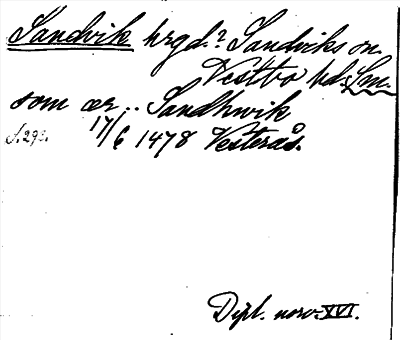 Sandvik hrgd.? Sandviks sn.
Vestbo hd. Sm.
som ær .. Sandhwik
S. 293. 17/6 1478 Vesterås.
Dipl. norv. XVI.